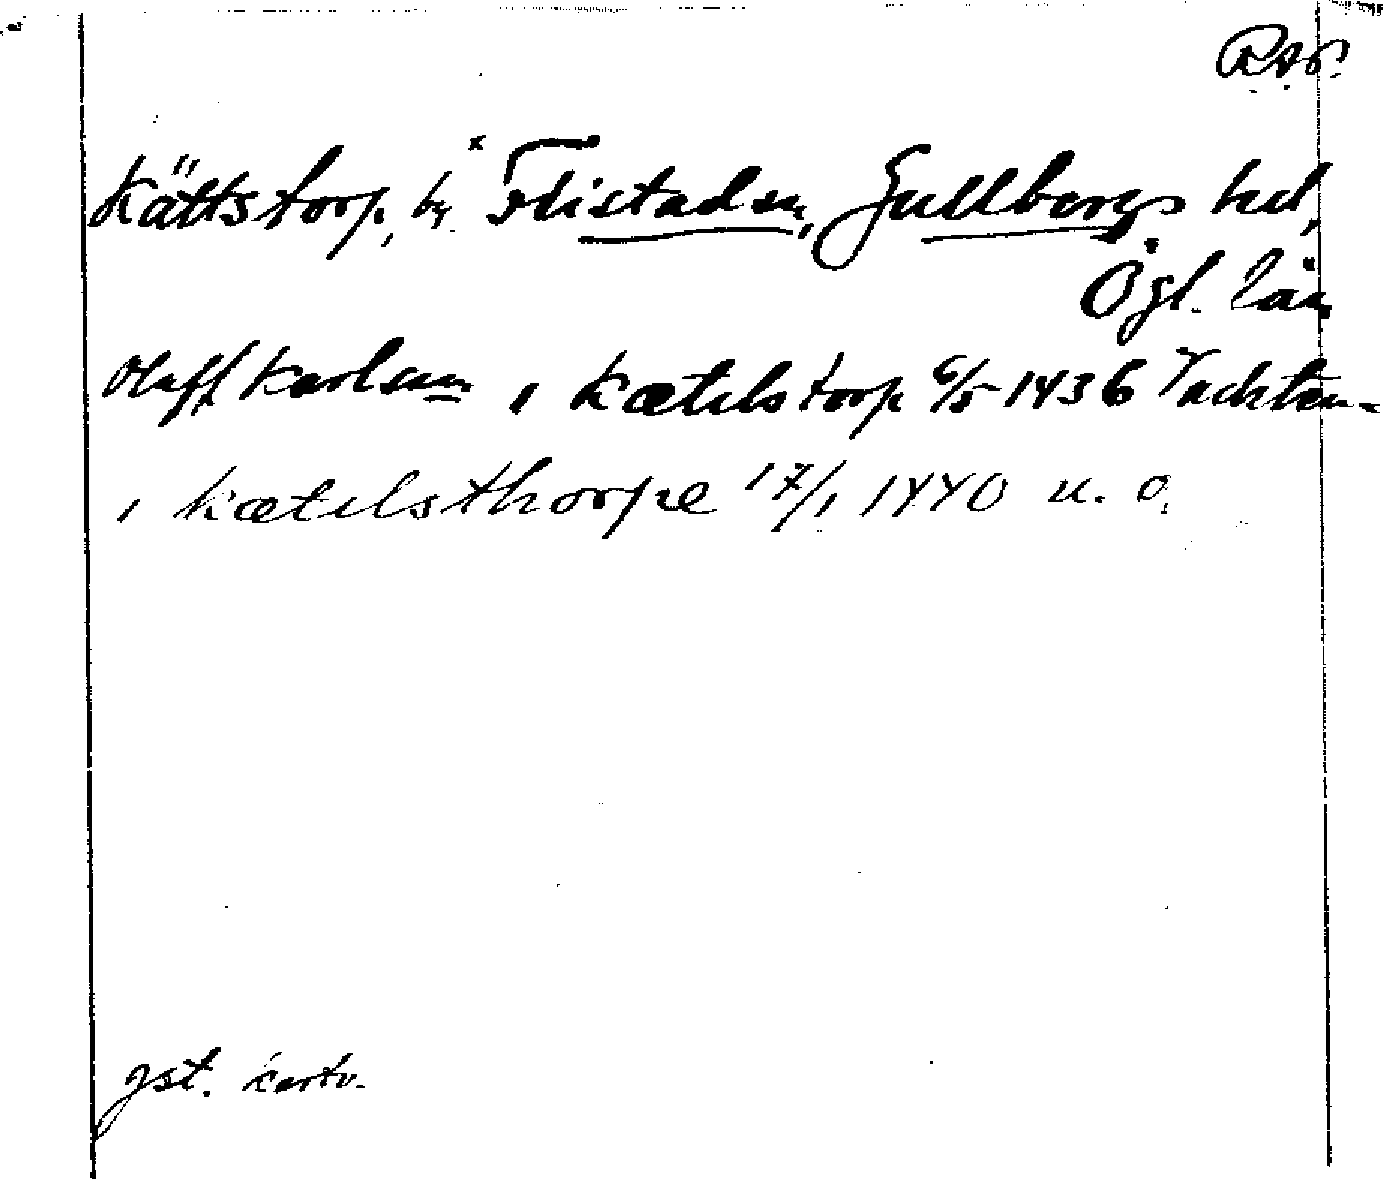 RAP.
Kättstorp, by Flistads sn, Gullbergs hd,
Ögl. län
Olaff Karlsun i Kætilstorp 6/5 1436 Vachten-
i Kætilsthorpe 17/1 1440 u. o.
gst. kartv.